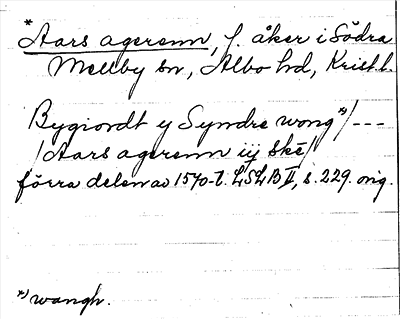 *Aars agerenn, f. åker i Södra
Mellby sn, Albo hd, Kristl.
Bygiordt y Syndre wong *)/---
/Aars agerenn iij Ske/
förra delen av 1570-t. LSLB II, s. 229. orig.
*) wangh.